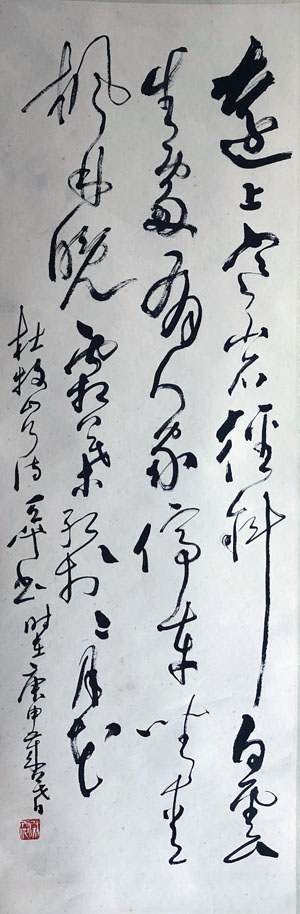 遠上寒山石徑斜白雲
生處有人家停車坐愛
楓林晚霜葉紅於二月花
杜牧山行詩書時在庚申